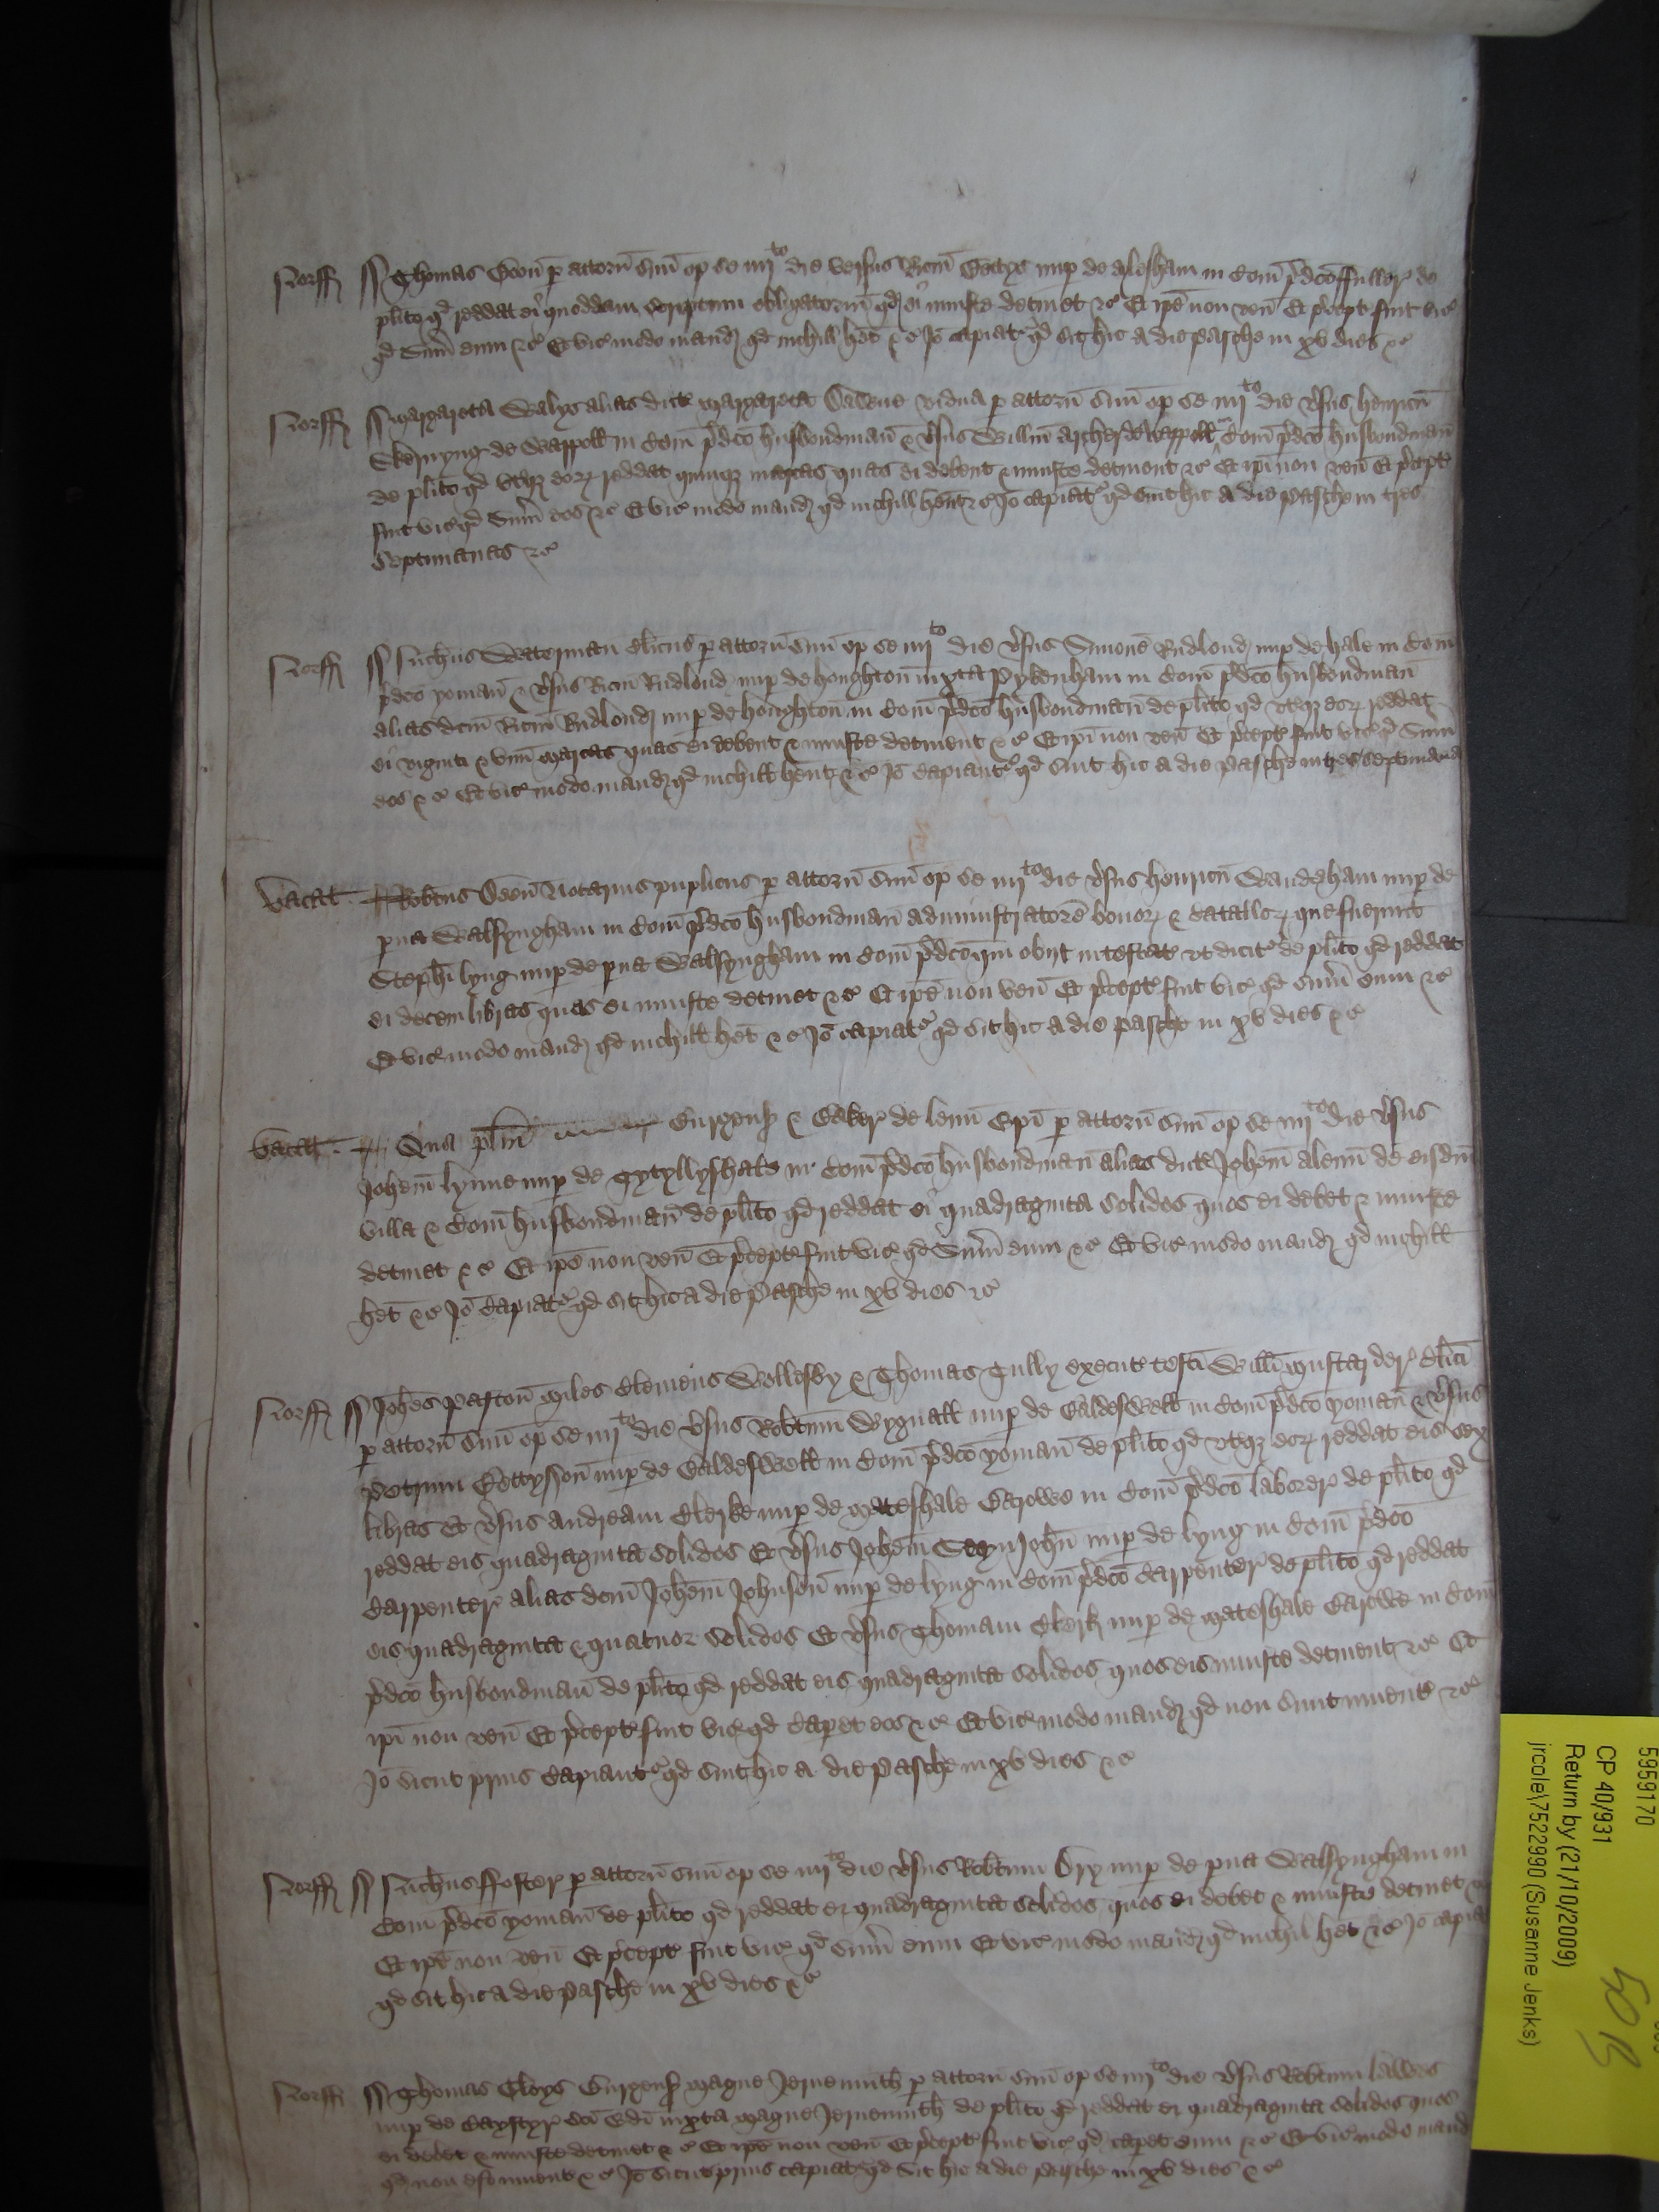 Norff ss Thomas Goon p attorn suu op se iiij to die versus Ricm Cottys nup de Alesham in Com pdco Fuller de
plito qd reddat ei quoddam scriptum obligatoriu qd ei iniuste detinet &c Et ipe non ven Et pcept fuit vic
qd Sum eum &c Et vic modo mand qd nichil het &c Io capiat qd sit hic a die Pasche in xv dies &c
Norff ss Margareta Walys alias dict Margareta vidua p attorn suu op se iiij to die vsus Henricu
Skernyng de Warpoll in Com pdco husbondman & vsus Willm Archer de Warpoll Com pdco husbondman
de plito qd vtq eor reddat quinq marcas quas ei debent & iniuste detinent &c Et ipi non ven Et pcept
fuit vic qd Sum eos &c Et vic modo mand qd nichill hent &c Io capiat qd sint hic a die Pasche in tres
Septimanas &c
Norff ss Nichus Waterman clicus p attorn suu op se iiij to die vsus Simone Rudlond nup de Hale in Com
pdco yoman & vsus Ricm Rudlond nup de Houghton iuxta Pykenham in Com pdco husbondman
alias dcm Ricm Rudlond nup de Houghton in Com pdco husbondman de plito qd vtq eor reddat
ei viginti & vnu marcas quas ei debent & iniuste detinent &c Et ipi non ven Et pcept fuit vic qd Sum
eos &c Et vic modo mand qd nichill hent &c Io capiant qd sint hic a die Pasche in tres septimana
Vacat Robtus Goon Notarius puplicus p attorn suu op se iiij to die vsus Henricu Wandeham nup de
pua Walsyngham in Com pdco husbondman administratore bonor & catallor que fuerunt
Stephi Lyng nup de pua Walsyngham in Com pdco qui obijt intestat vt dicit de plito qd reddat
ei decem libras quas ei iniuste detinet &c Et ipe non ven Et pcept fuit vic qd sum eum &c
Et vic modo mand qd nichill het &c Io capiat qd sit hic a die Pasche in xv dies &c
Vacat Qua plm Burgens & Baker de Lenn Epi p attorn suu op se iiij to die vsus
Johem Lynne nup de Tytyllyshale in Com pdco husbondman alias dict Johem Alenn de eisdm
villa & Com husbondman de plito qd reddat ei quadraginta solidos quos ei debet & iniuste
detinet &c Et ipe non ven Et pcept fuit vic qd Sum eum &c Et vic modo mand qd nichill
het &c Io Capiat qd sit hic a die Pasche in xv dies &c
Norff ss Johes Paston Miles Clemens Wellesby & Thomas Tully execut testi Willi Mustarder clici
p attorn suu op se iiij to die vsus Robtum Wygnall nup de Caldeswell in Com pdco yoman & vsus
Petrum Cottysson nup de Caldeswell in Com pdco yoman de plito qd vtq eor reddat eis sex
libras Et vsus Andream Clerke nup de Mateshale Barowe in Com pdco laborer de plito qd
reddat eis quadraginta solidos Et vsus Johem Seynjohn nup de Lyng in Com pdco
Carpenter alias dcm Johem Johnson nup de Lyng in Com pdco Carpenter de plito qd reddat
eis quadraginta & quatuor solidos Et vsus Thomam Clerk nup de Mateshale Barowe in Com
pdco husbondman de plito qd reddat eis quadraginta solidos quos eis iniuste detinent &c Et
ipi non ven Et pcept fuit vic qd Caperet eos &c Et vic modo mand qd non sunt inuent &c
Io sicut prius capiant qd sint hic a die Pasche in xv dies &c
Norff ss Nichus Foster p attorn suu op se iiij to die vsus Robtum Dry nup de pua Walsyngham in
Com pdco yoman de plito qd reddat ei quadraginta solidos quos ei debet & iniuste detinet
Et ipe non ven Et pcept fuit vic qd sum eum Et vic modo mand qd nichil het &c Io capia
qd sit hic a die Pasche in xv dies &c
Norff ss Thomas Cloys Burgens Magne Jernemuth p attorn suu op se iiij to die vsus Robtum Lawes
nup de Caystyr sci Edi iuxta Magne Jernemuth de plito qd reddat ei quadraginta solidos quos
ei debet & iniuste detinet &c Et ipe non ven Et pcept fuit vic qd caperet eum &c Et vic modo mand
qd non est inuent &c Io sicut prius capiat qd sit hic a die Pasche in xv dies &c
5959170
CP 40/931
Return by (21/10/2009)
jrcole\7522990 (Susanne Jenks)